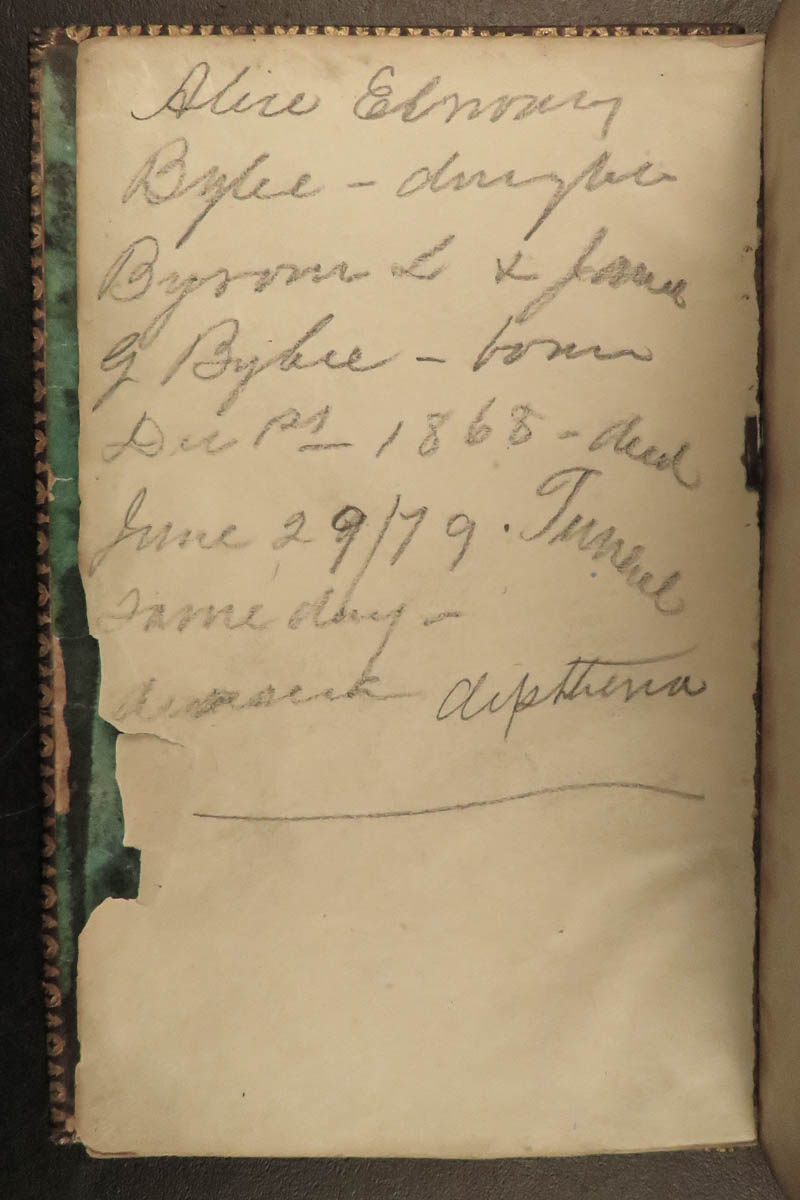 Alice Ebnoary
Bybee - daughter
Byrom L & Jama
G Bybee - born
Dec 1st - 1868 - died
June 29/79. Funeral
same day -
disease diptheria